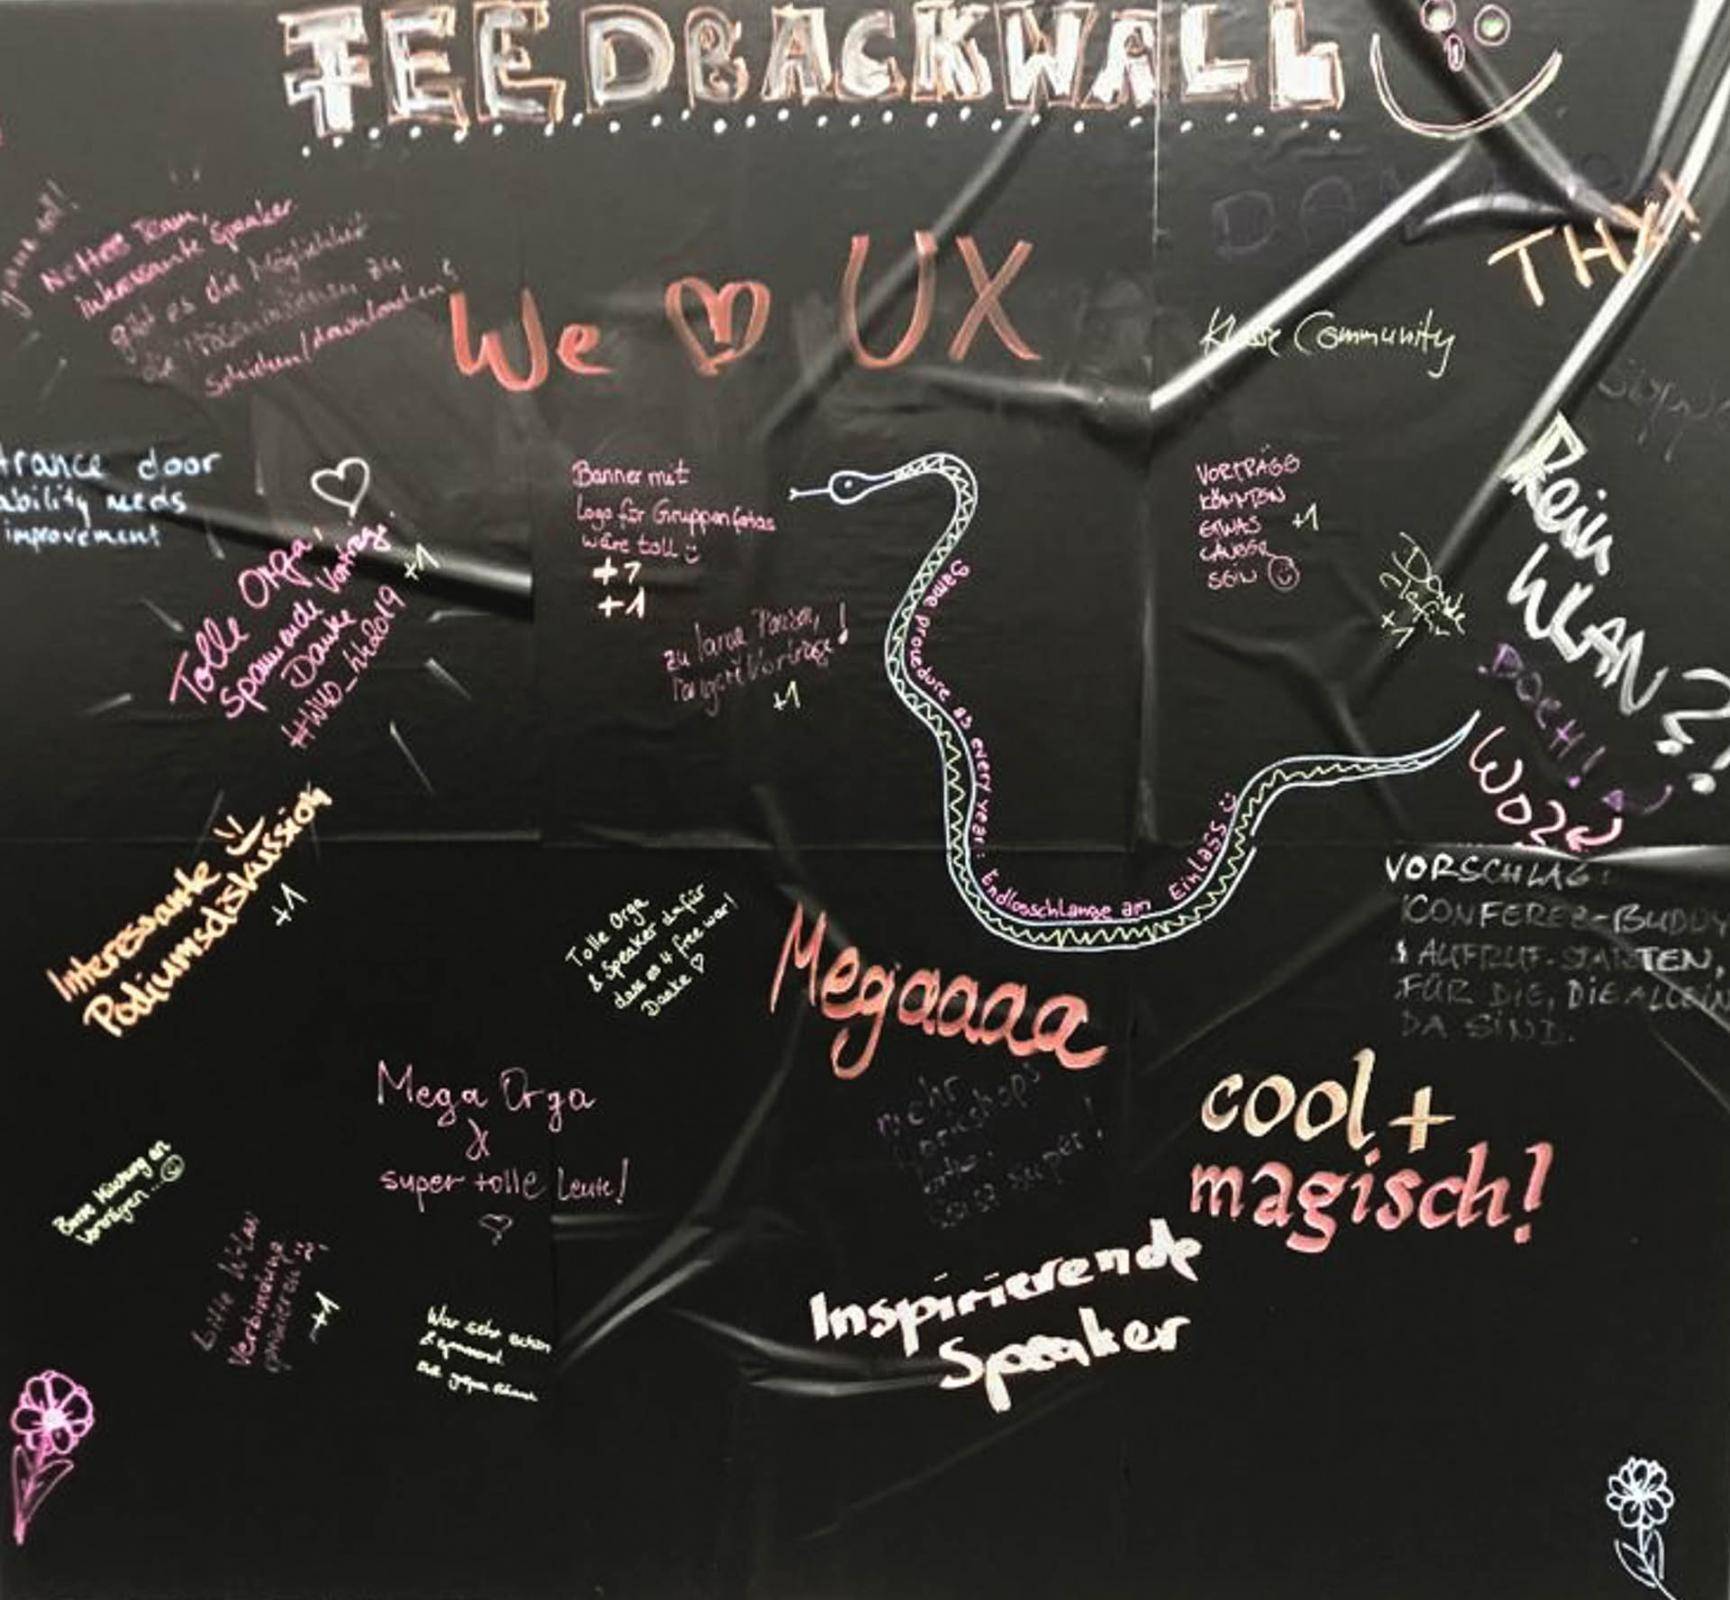 FEEDBACKWALL
Nettes Team,
interessante Speaker
gibt es die Möglichkeit
die zu
We UX
THX!
Klasse Community
trance door
ability needs
improvement
Tolle Orga,
Spannende Vorträge
Danke
#WUD_hh2019
+1
Banner mit
Logo für Gruppenfotos
wäre toll
+1
+1
zu lange Pausen,
längere Vorträge!
+1
VORTRÄGE
KÖNNTEN
ETWAS
LÄNGER
SEIN
+1
Danke
+1
Kein
WLAN?!
DOCH!
WO??
Same procedure as every year: Endlosschlange am Einlass
VORSCHLAG:
CONFEREZ-BUDDY
AUFRUF STARTEN,
FÜR DIE, DIE ALLEIN
DA SIND.
Interessante
Podiumsdiskussion
+1
Tolle Orga
& Speaker dafür
dass es 4 free war!
Danke
Megaaaa
Mega Orga
&
super tolle Leute!
mehr
Workshops
super!
cool +
magisch!
Mischung an
Vorträgen...
Bitte WLan
Verbindung
+1
War sehr schön
& spannend.
Inspirierende
Speaker